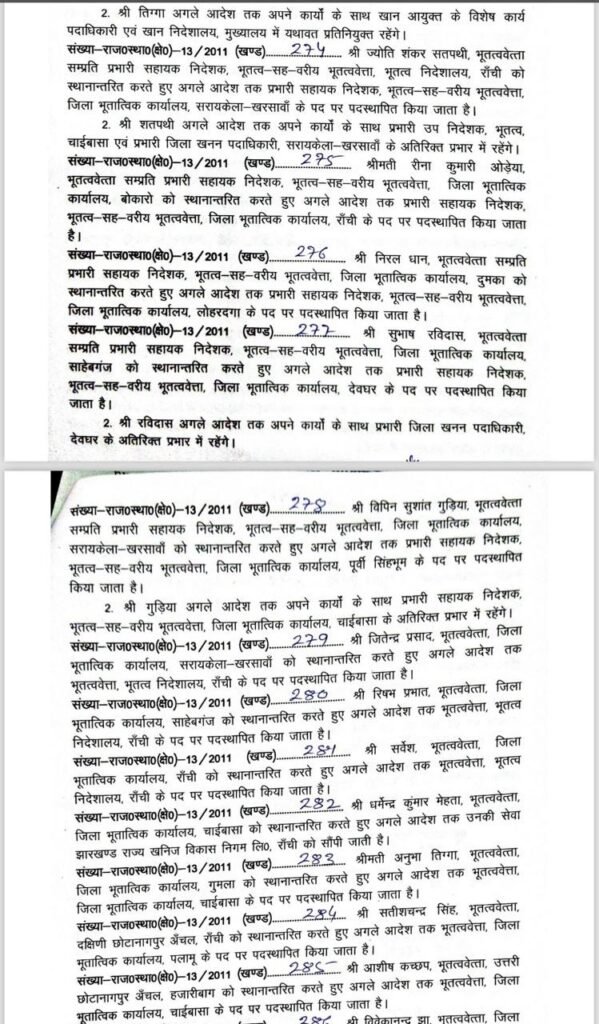 2. श्री तिग्गा अगले आदेश तक अपने कार्यों के साथ खान आयुक्त के विशेष कार्य
पदाधिकारी एवं खान निदेशालय, मुख्यालय में यथावत प्रतिनियुक्त रहेंगे।
संख्या–राज0स्था0(क्षे0)–13/2011 (खण्ड)....274.... श्री ज्योति शंकर सतपथी, भूतत्ववेत्ता
सम्प्रति प्रभारी सहायक निदेशक, भूतत्व–सह–वरीय भूतत्ववेत्ता, भूतत्व निदेशालय, राँची को
स्थानान्तरित करते हुए अगले आदेश तक प्रभारी सहायक निदेशक, भूतत्व–सह–वरीय भूतत्ववेत्ता,
जिला भूतात्विक कार्यालय, सरायकेला–खरसावाँ के पद पर पदस्थापित किया जाता है।
2. श्री शतपथी अगले आदेश तक अपने कार्यों के साथ प्रभारी उप निदेशक, भूतत्व,
चाईबासा एवं प्रभारी जिला खनन पदाधिकारी, सरायकेला–खरसावाँ के अतिरिक्त प्रभार में रहेंगे।
संख्या–राज0स्था0(क्षे0)–13/2011 (खण्ड)....275.... श्रीमती रीना कुमारी ओड़ेया,
भूतत्ववेत्ता सम्प्रति प्रभारी सहायक निदेशक, भूतत्व–सह–वरीय भूतत्ववेत्ता, जिला भूतात्विक
कार्यालय, बोकारो को स्थानान्तरित करते हुए अगले आदेश तक प्रभारी सहायक निदेशक,
भूतत्व–सह–वरीय भूतत्ववेत्ता, जिला भूतात्विक कार्यालय, राँची के पद पर पदस्थापित किया जाता
है।
संख्या–राज0स्था0(क्षे0)–13/2011 (खण्ड)....276.... श्री निरल धान, भूतत्ववेत्ता सम्प्रति
प्रभारी सहायक निदेशक, भूतत्व–सह–वरीय भूतत्ववेत्ता, जिला भूतात्विक कार्यालय, दुमका को
स्थानान्तरित करते हुए अगले आदेश तक प्रभारी सहायक निदेशक, भूतत्व–सह–वरीय भूतत्ववेत्ता,
जिला भूतात्विक कार्यालय, लोहरदगा के पद पर पदस्थापित किया जाता है।
संख्या–राज0स्था0(क्षे0)–13/2011 (खण्ड)....277.... श्री सुभाष रविदास, भूतत्ववेत्ता
सम्प्रति प्रभारी सहायक निदेशक, भूतत्व–सह–वरीय भूतत्ववेत्ता, जिला भूतात्विक कार्यालय,
साहेबगंज को स्थानान्तरित करते हुए अगले आदेश तक प्रभारी सहायक निदेशक,
भूतत्व–सह–वरीय भूतत्ववेत्ता, जिला भूतात्विक कार्यालय, देवघर के पद पर पदस्थापित किया
जाता है।
2. श्री रविदास अगले आदेश तक अपने कार्यों के साथ प्रभारी जिला खनन पदाधिकारी,
देवघर के अतिरिक्त प्रभार में रहेंगे।
संख्या–राज0स्था0(क्षे0)–13/2011 (खण्ड)....278.... श्री विपिन सुशांत गुड़िया, भूतत्ववेत्ता
सम्प्रति प्रभारी सहायक निदेशक, भूतत्व–सह–वरीय भूतत्ववेत्ता, जिला भूतात्विक कार्यालय,
सरायकेला–खरसावाँ को स्थानान्तरित करते हुए अगले आदेश तक प्रभारी सहायक निदेशक,
भूतत्व–सह–वरीय भूतत्ववेत्ता, जिला भूतात्विक कार्यालय, पूर्वी सिंहभूम के पद पर पदस्थापित
किया जाता है।
2. श्री गुड़िया अगले आदेश तक अपने कार्यों के साथ प्रभारी सहायक निदेशक,
भूतत्व–सह–वरीय भूतत्ववेत्ता, जिला भूतात्विक कार्यालय, चाईबासा के अतिरिक्त प्रभार में रहेंगे।
संख्या–राज0स्था0(क्षे0)–13/2011 (खण्ड)....279.... श्री जितेन्द्र प्रसाद, भूतत्ववेत्ता, जिला
भूतात्विक कार्यालय, सरायकेला–खरसावाँ को स्थानान्तरित करते हुए अगले आदेश तक
भूतत्ववेत्ता, भूतत्व निदेशालय, राँची के पद पर पदस्थापित किया जाता है।
संख्या–राज0स्था0(क्षे0)–13/2011 (खण्ड)....280.... श्री रिषम प्रभात, भूतत्ववेत्ता, जिला
भूतात्विक कार्यालय, साहेबगंज को स्थानान्तरित करते हुए अगले आदेश तक भूतत्ववेत्ता, भूतत्व
निदेशालय, राँची के पद पर पदस्थापित किया जाता है।
संख्या–राज0स्था0(क्षे0)–13/2011 (खण्ड)....281.... श्री सर्वेश, भूतत्ववेत्ता, जिला
भूतात्विक कार्यालय, राँची को स्थानान्तरित करते हुए अगले आदेश तक भूतत्ववेत्ता, भूतत्व
निदेशालय, राँची के पद पर पदस्थापित किया जाता है।
संख्या–राज0स्था0(क्षे0)–13/2011 (खण्ड)....282.... श्री धर्मेन्द्र कुमार मेहता, भूतत्ववेत्ता,
जिला भूतात्विक कार्यालय, चाईबासा को स्थानान्तरित करते हुए अगले आदेश तक उनकी सेवा
झारखण्ड राज्य खनिज विकास निगम लि0, राँची को सौंपी जाती है।
संख्या–राज0स्था0(क्षे0)–13/2011 (खण्ड)....283.... श्रीमती अनुभा तिग्गा, भूतत्ववेत्ता,
जिला भूतात्विक कार्यालय, गुमला को स्थानान्तरित करते हुए अगले आदेश तक भूतत्ववेत्ता,
जिला भूतात्विक कार्यालय, चाईबासा के पद पर पदस्थापित किया जाता है।
संख्या–राज0स्था0(क्षे0)–13/2011 (खण्ड)....284.... श्री सतीशचन्द्र सिंह, भूतत्ववेत्ता,
दक्षिणी छोटानागपुर अँचल, राँची को स्थानान्तरित करते हुए अगले आदेश तक भूतत्ववेत्ता, जिला
भूतात्विक कार्यालय, पलामू के पद पर पदस्थापित किया जाता है।
संख्या–राज0स्था0(क्षे0)–13/2011 (खण्ड)....285.... श्री आशीष कच्छप, भूतत्ववेत्ता, उत्तरी
छोटानागपुर अँचल, हजारीबाग को स्थानान्तरित करते हुए अगले आदेश तक भूतत्ववेत्ता, जिला
भूतात्विक कार्यालय, चाईबासा के पद पर पदस्थापित किया जाता है।
286 श्री विवेकानन्द झा, भूतत्ववेत्ता, जिला